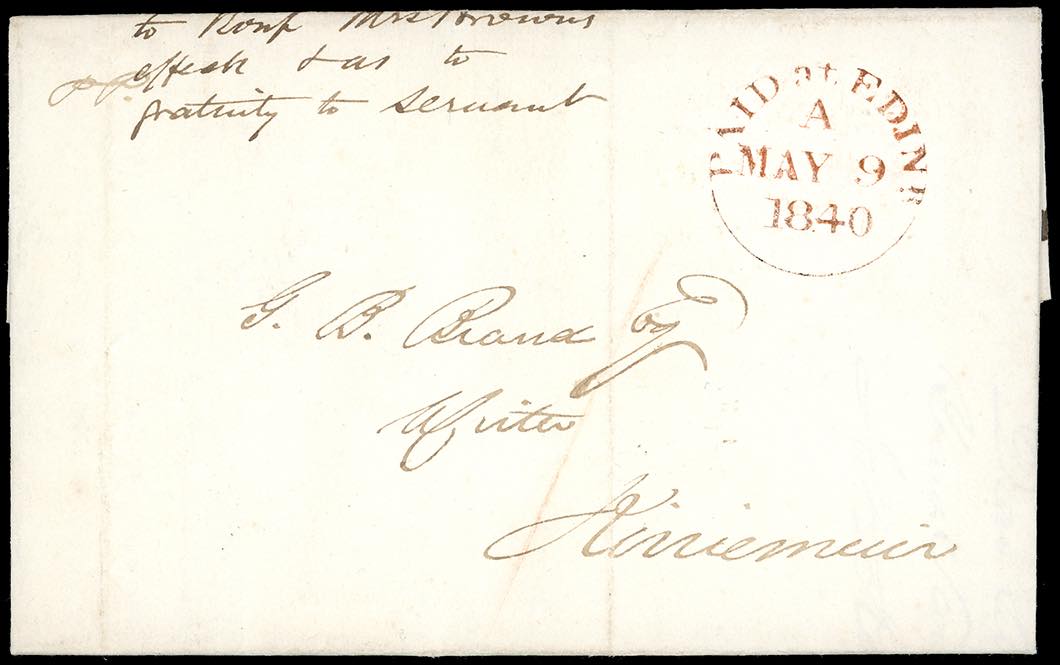 to Roup Mrs Browns
effects & as to
gratuity to servant
pp.
PAID at EDINR
A
MAY 9
1840
G. B. Brand Esq
Writer
Kirriemuir